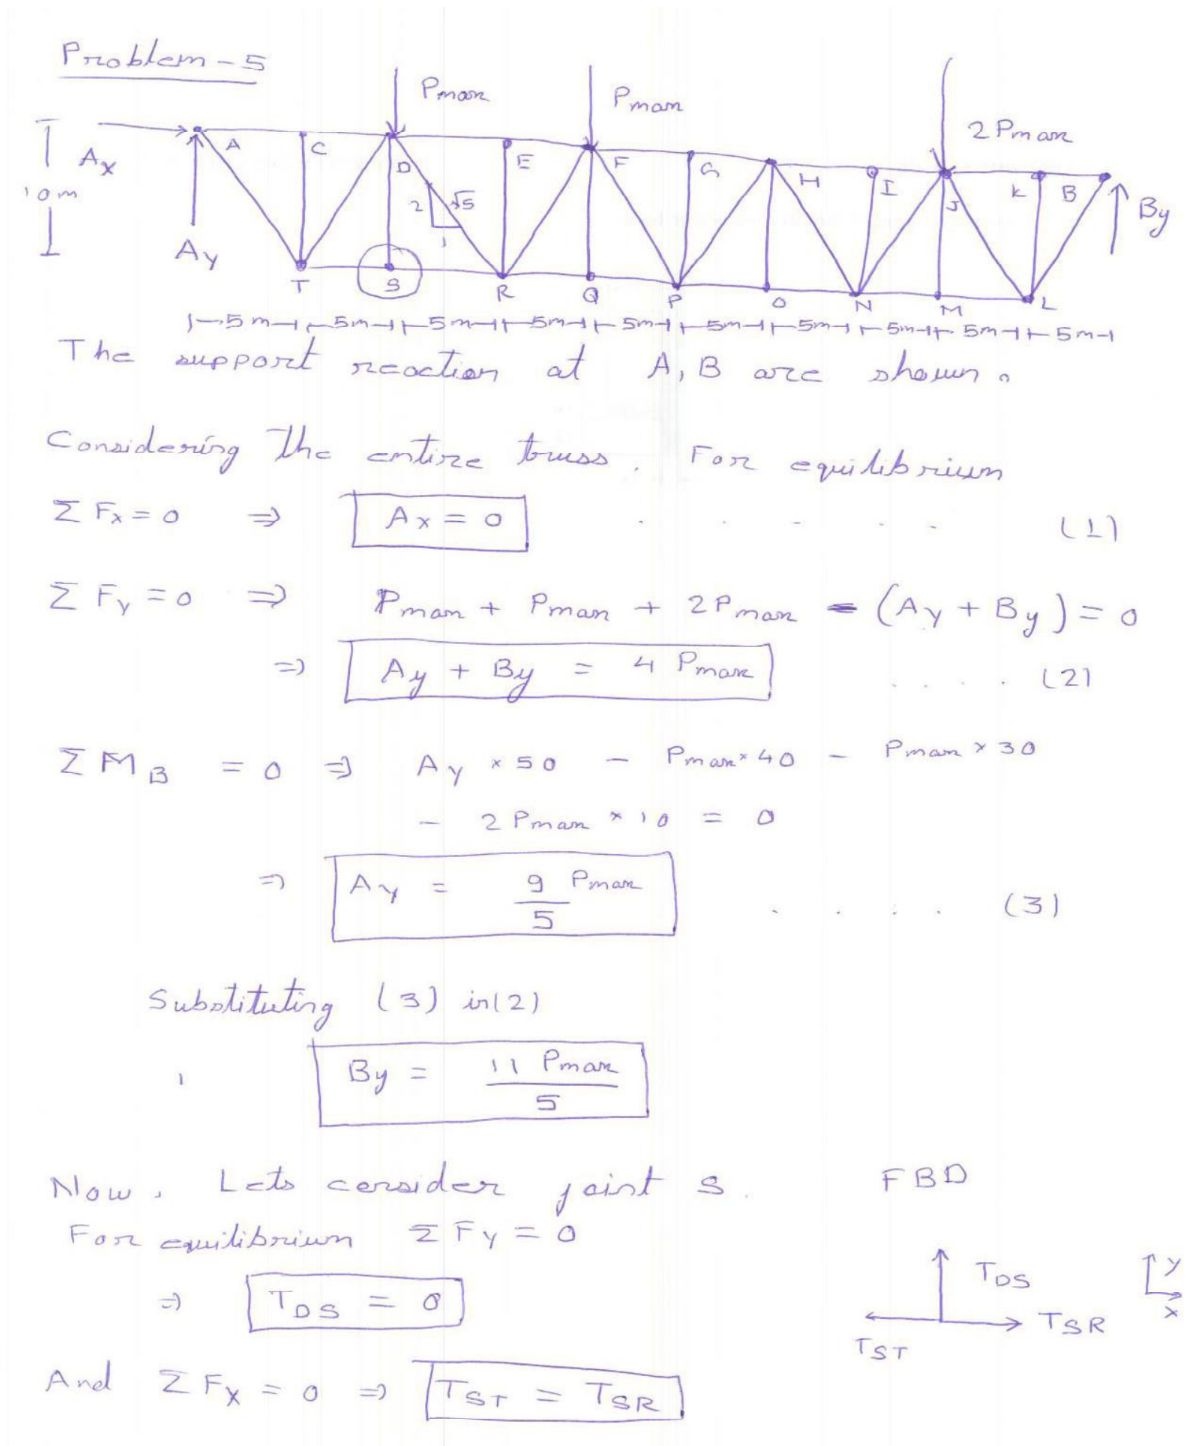 Problem - 5
Pmax
Pmax
2 Pmax
Ax
A
C
D
E
F
G
H
I
J
K
B
By
10m
2
√5
1
Ay
T
S
R
Q
P
O
N
M
L
5m 5m 5m 5m 5m 5m 5m 5m 5m 5m
The support reaction at A, B are shown.
Considering the entire truss. For equilibrium
Σ Fx = 0 ⇒ Ax = 0 . . . . . (1)
Σ Fy = 0 ⇒ Pmax + Pmax + 2 Pmax - (Ay + By) = 0
⇒ Ay + By = 4 Pmax . . . . (2)
Σ MB = 0 ⇒ Ay × 50 - Pmax × 40 - Pmax × 30
- 2 Pmax × 10 = 0
⇒ Ay = 9 Pmax / 5 . . . . (3)
Substituting (3) in (2)
By = 11 Pmax / 5
Now, Lets consider joint S.
FBD
For equilibrium Σ Fy = 0
⇒ TDS = 0
TDS
TSR
TST
y
x
And Σ Fx = 0 ⇒ TST = TSR